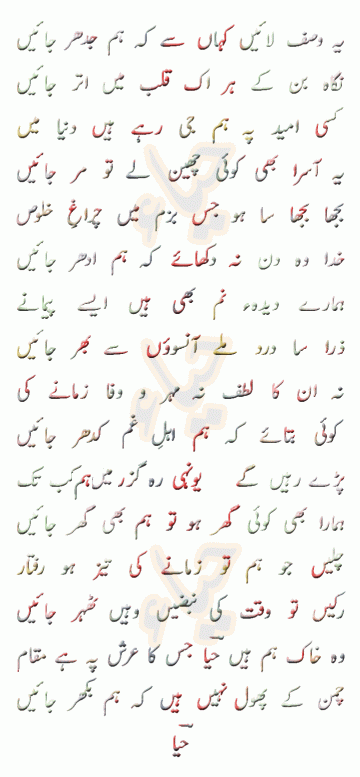 یہ وصف لائیں کہاں سے کہ ہم جدھر جائیں
نگاہ بن کے ہر اک قلب میں اتر جائیں
کسی امید پہ ہم جی رہے ہیں دنیا میں
یہ آسرا بھی کوئی چھین لے تو مر جائیں
بجھا بجھا سا ہو جس بزم میں چراغِ خلوص
خدا وہ دن نہ دکھائے کہ ہم ادھر جائیں
ہمارے دیدہء نم بھی ہیں ایسے پیمانے
ذرا سا درد ملے آنسوؤں سے بھر جائیں
نہ ان کا لطف نہ مہر و وفا زمانے کی
کوئی بتائے کہ ہم اہلِ غم کدھر جائیں
پڑے رہیں گے یونہی رہ گزر میں ہم کب تک
ہمارا بھی کوئی گھر ہو تو ہم بھی گھر جائیں
چلیں جو ہم تو زمانے کی تیز ہو رفتار
رکیں تو وقت کی نبضیں وہیں ٹھہر جائیں
وہ خاک ہم ہیں حیا جس کا عرش پہ ہے مقام
چمن کے پھول نہیں ہیں کہ ہم بکھر جائیں
حیا
حیاء
حیاء
حیاء